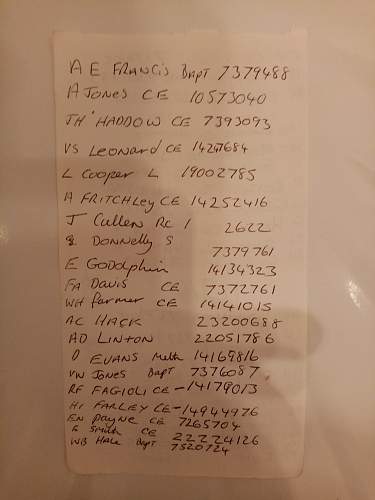 A E FRANCIS Bapt 7379488
A JONES CE 10573040
JH HADDOW CE 7393093
VS Leonard CE 14247684
L Cooper L 19002785
A FRITCHLEY CE 14252416
J Cullen RC 1 2622
DONNELLY S 7379761
E GODOLPHIN 14134323
FA DAVIS CE 7372761
WH Farmer CE 14141015
AC HACK 23200688
AD LINTON 22051786
D EVANS Meth 14169816
VW JONES BAPT 7376087
RF FAGIOLI CE - 14179013
HI FARLEY CE - 14944976
EN Payne CE 7265704
G Smith CE 22224126
WB Hale Bapt 7520724